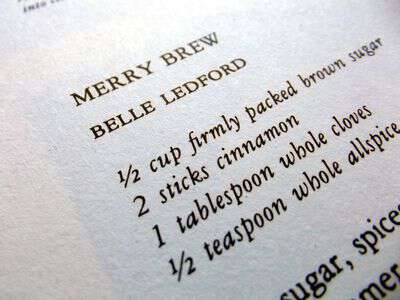 MERRY BREW
BELLE LEDFORD
½ cup firmly packed brown sugar
2 sticks cinnamon
1 tablespoon whole cloves
½ teaspoon whole allspice
sugar, spices